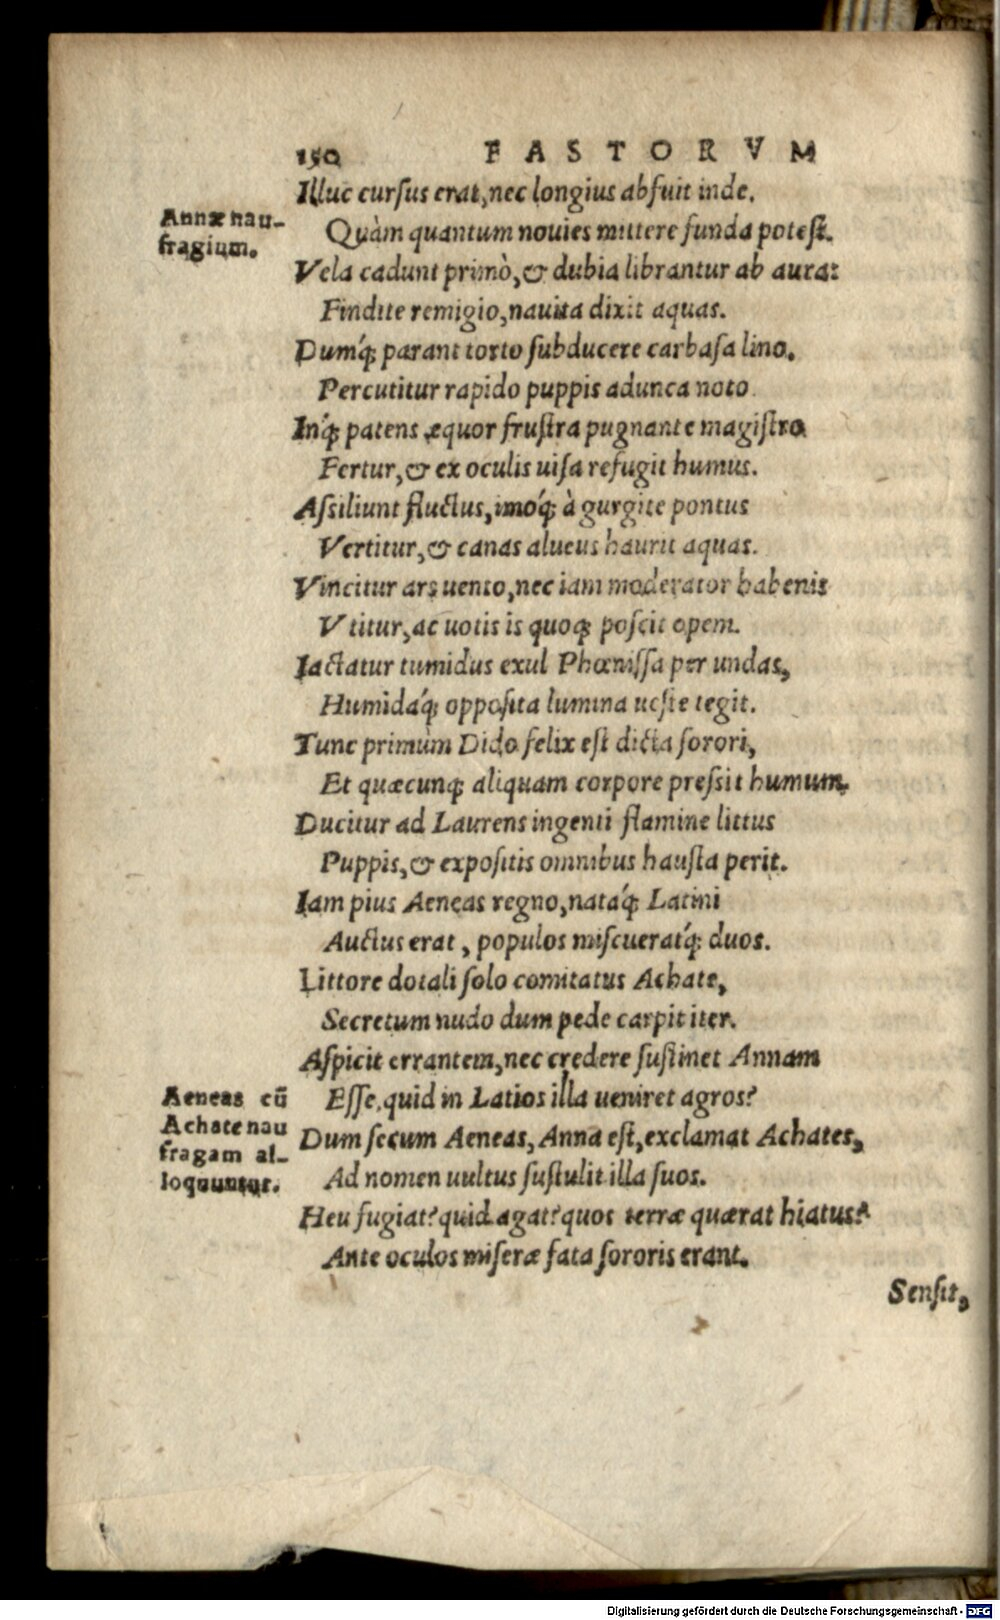 150 FASTORVM
Illuc cursus erat, nec longius abfuit inde,
Annæ nau-
fragium.
Quàm quantum nouies mittere funda potest.
Vela cadunt primò, & dubia librantur ab aura:
Findite remigio, nauita dixit aquas.
Dumq́; parant torto subducere carbasa lino,
Percutitur rapido puppis adunca noto.
Inq́; patens æquor frustra pugnante magistro
Fertur, & ex oculis uisa refugit humus.
Assiliunt fluctus, imoq́; à gurgite pontus
Vertitur, & canas alueus haurit aquas.
Vincitur ars uento, nec iam moderator habenis
Vtitur, ac uotis is quoq; poscit opem.
Iactatur tumidus exul Phœnissa per undas,
Humidaq́; opposita lumina ueste tegit.
Tunc primùm Dido felix est dicta sorori,
Et quæcunq; aliquam corpore pressit humum.
Ducitur ad Laurens ingenti flamine littus
Puppis, & expositis omnibus hausta perit.
Iam pius Aeneas regno, nataq́; Latini
Auctus erat, populos miscueratq́; duos.
Littore dotali solo comitatus Achate,
Secretum nudo dum pede carpit iter.
Aspicit errantem, nec credere sustinet Annam
Aeneas cū
Achate nau
fragam al-
loquuntur.
Esse, quid in Latios illa ueniret agros?
Dum secum Aeneas, Anna est, exclamat Achates,
Ad nomen uultus sustulit illa suos.
Heu fugiat? quid agat? quos terræ quærat hiatus?
Ante oculos miseræ fata sororis erant.
Sensit,
Digitalisierung gefördert durch die Deutsche Forschungsgemeinschaft - DFG